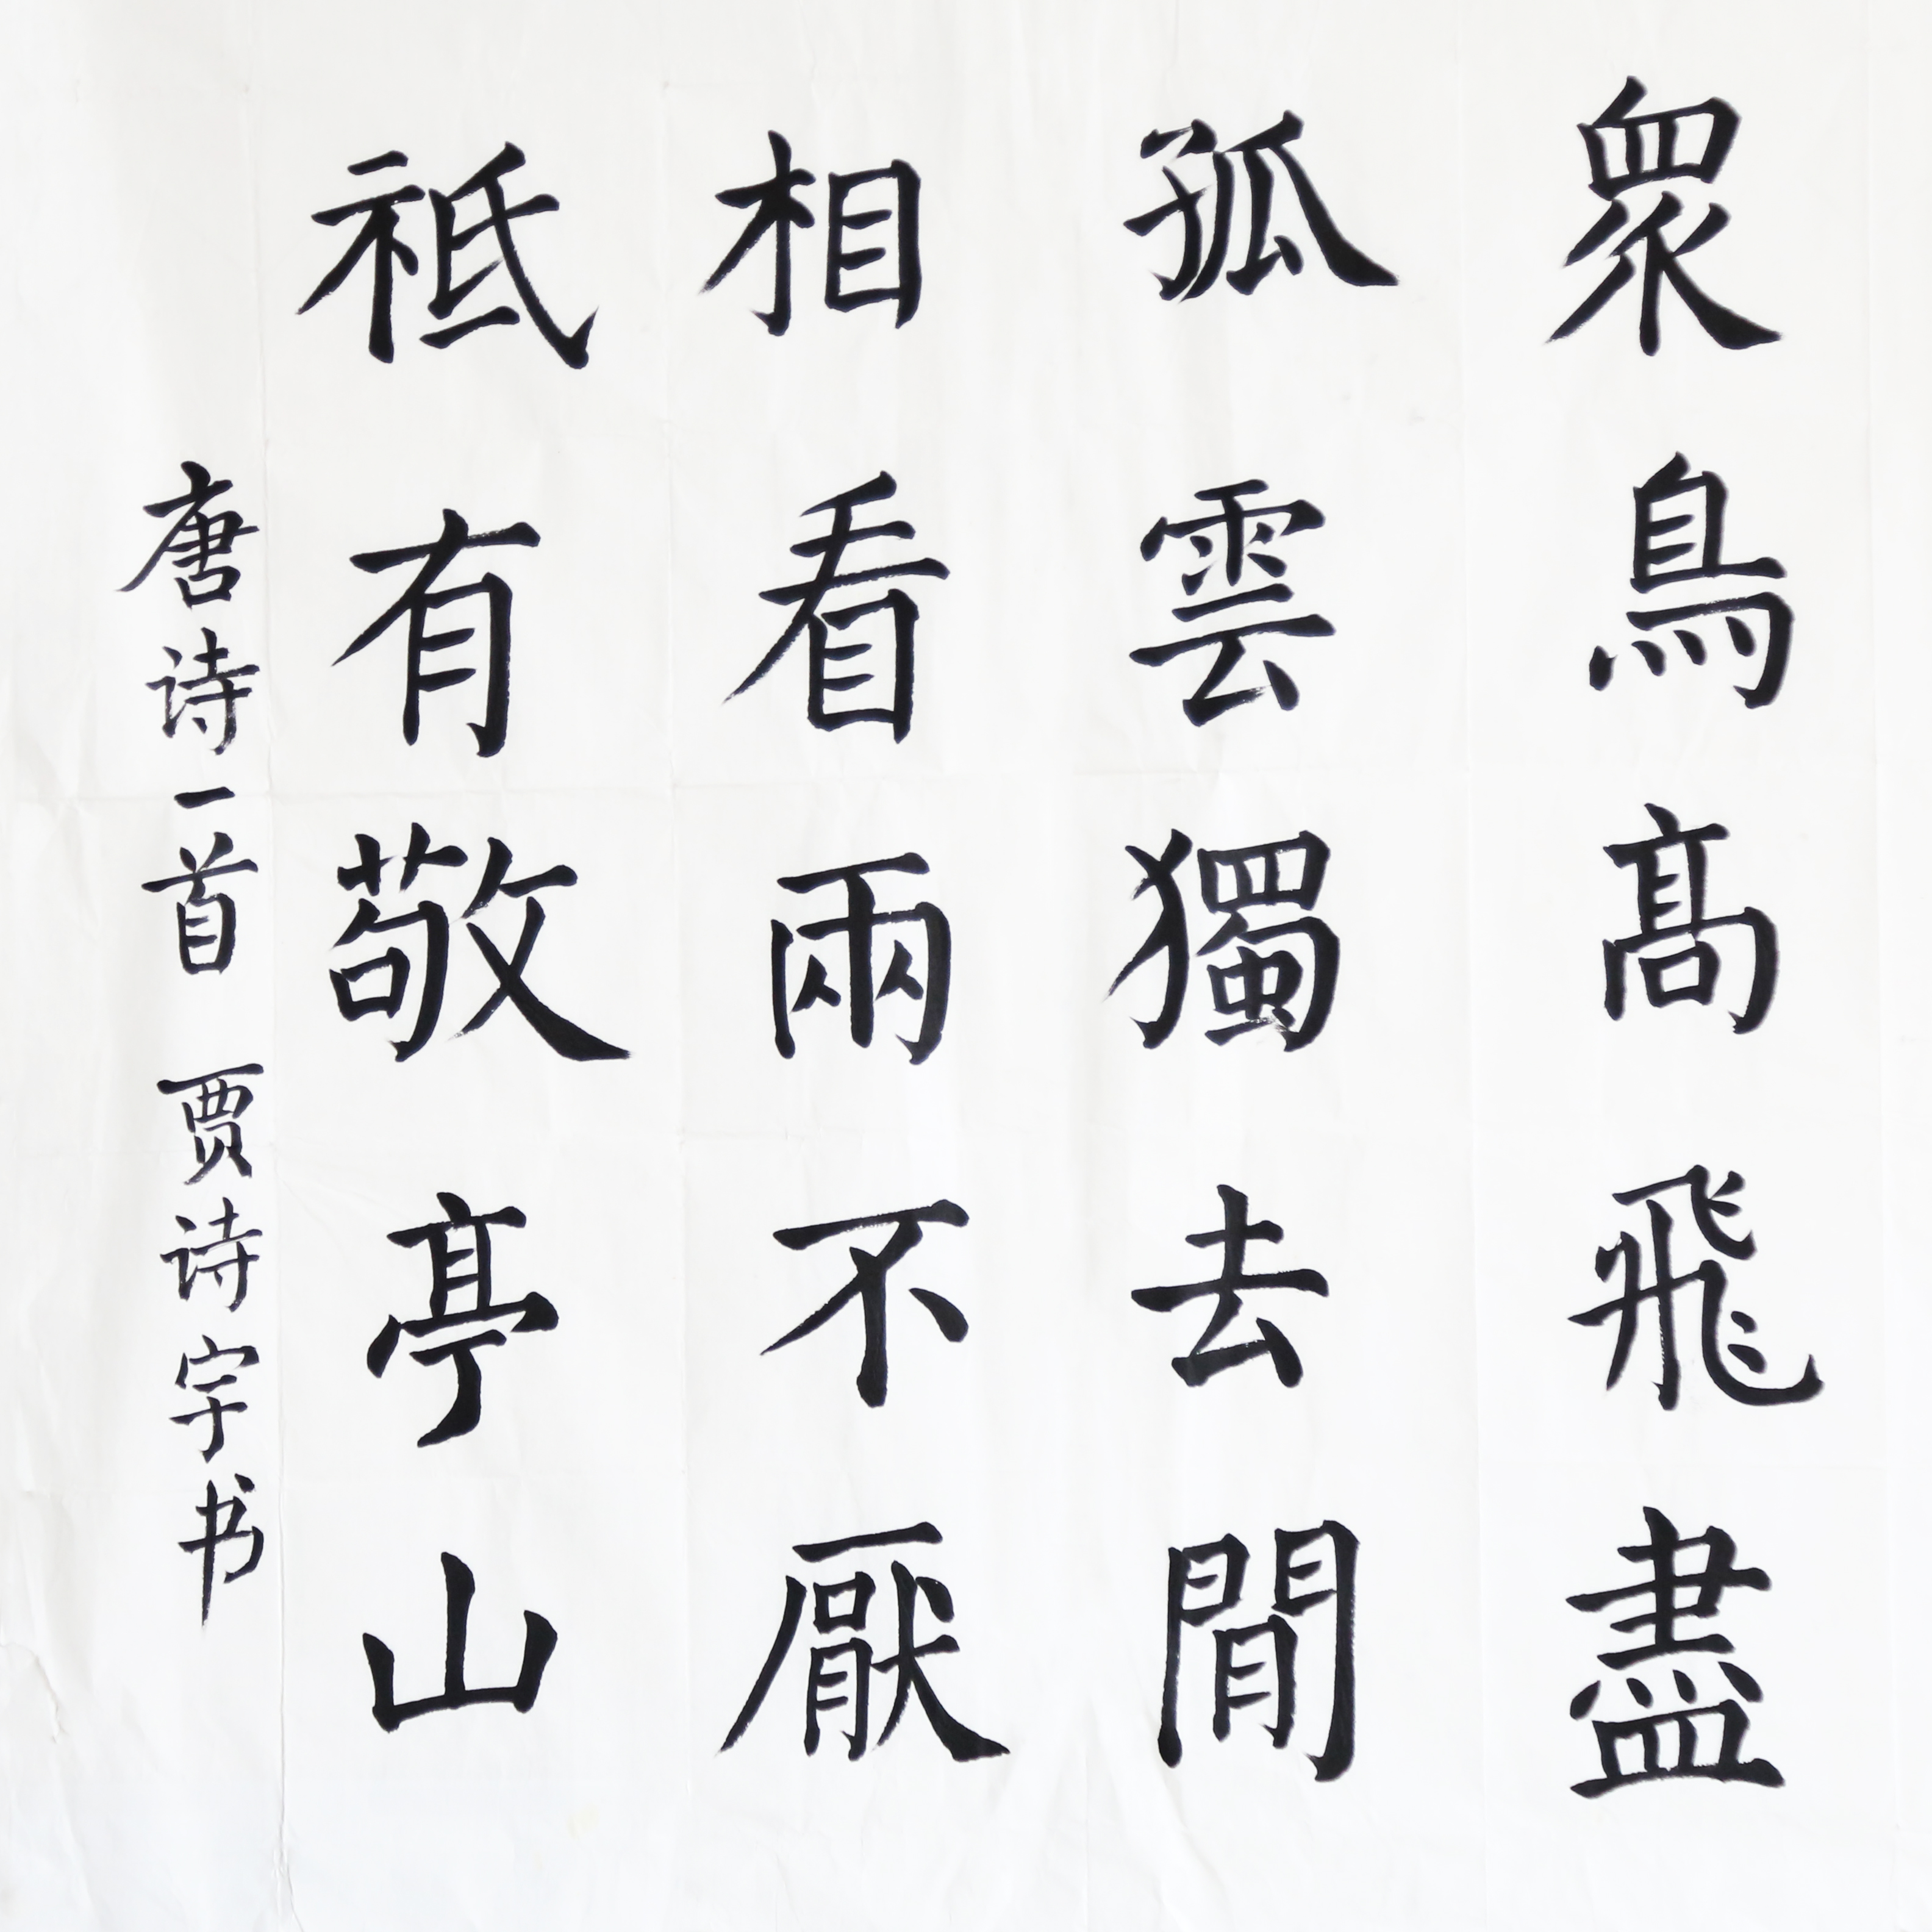 眾鳥髙飛盡
孤雲獨去閒
相看兩不厭
祗有敬亭山
唐诗一首 贾诗宇书